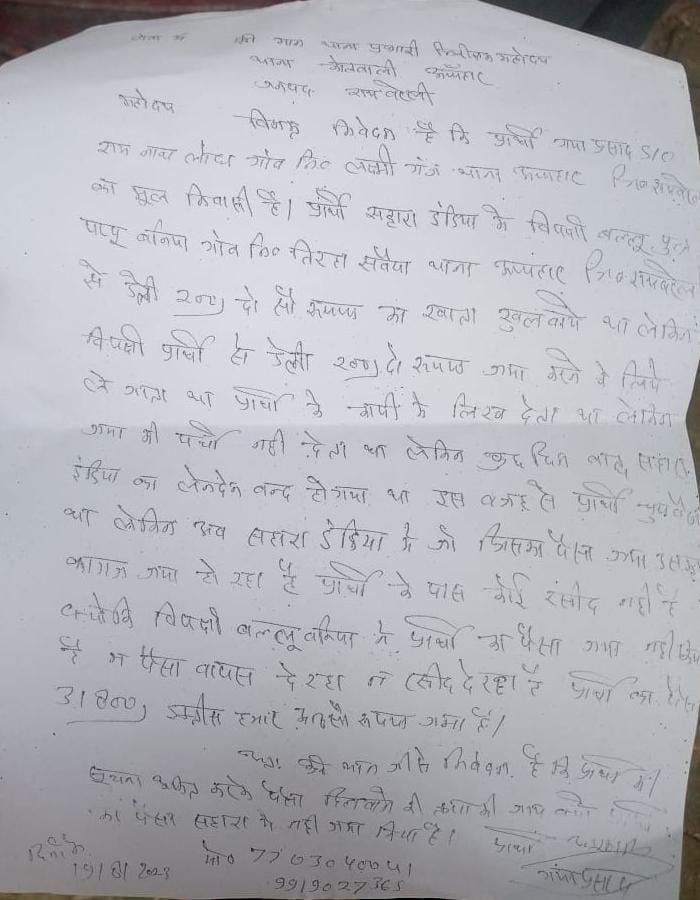 सेवा में श्री मान थाना प्रभारी निरीक्षक महोदय
थाना कोतवाली ऊंचाहार
जनपद रायबरेली
महोदय
विनम्र निवेदन है कि प्रार्थी गया प्रसाद S/O
राम नाथ लोधा गाँव नि० लक्ष्मी गंज थाना ऊंचाहार जि० रायबरेली
का मूल निवासी है। प्रार्थी सहारा इंडिया के विपक्षी बल्लू पुत्र
पप्पू बनिया गाँव नि० सवैया थाना ऊंचाहार जि० रायबरेली
से डेली 200) दो सौ रूपए का खाता खुलवाये था लेकिन
विपक्षी प्रार्थी से डेली 200) दो रूपए जमा करने के लिये
ले जाता था प्रार्थी के कापी के लिख देता था लेकिन
जमा की पर्ची नही देता था लेकिन कुछ दिन बाद सहारा
इंडिया का लेनदेन बन्द हो गया था इस वजह से प्रार्थी चुप
था लेकिन अब सहारा इंडिया मे जो जिसका पैसा जमा उसका
कागज जमा हो रहा है प्रार्थी के पास कोई रसीद नही है
क्योकि विपक्षी बल्लू बनिया ने प्रार्थी का पैसा जमा नही किया
है न पैसा वापस दे रहा न रसीद दे रहा है प्रार्थी का पैसा
31800) इक्तीस हजार आठ सौ रूपए जमा है।
श्री मान जी से निवेदन है कि प्रार्थी की
सूचना अंकित करके पैसा दिलवाने की कृपा की जाय
का पैसा सहारा मे नही जमा किया है। प्रार्थी
दिनांक मो० 7703040041 गया प्रसाद
19/8/2023 9919027365